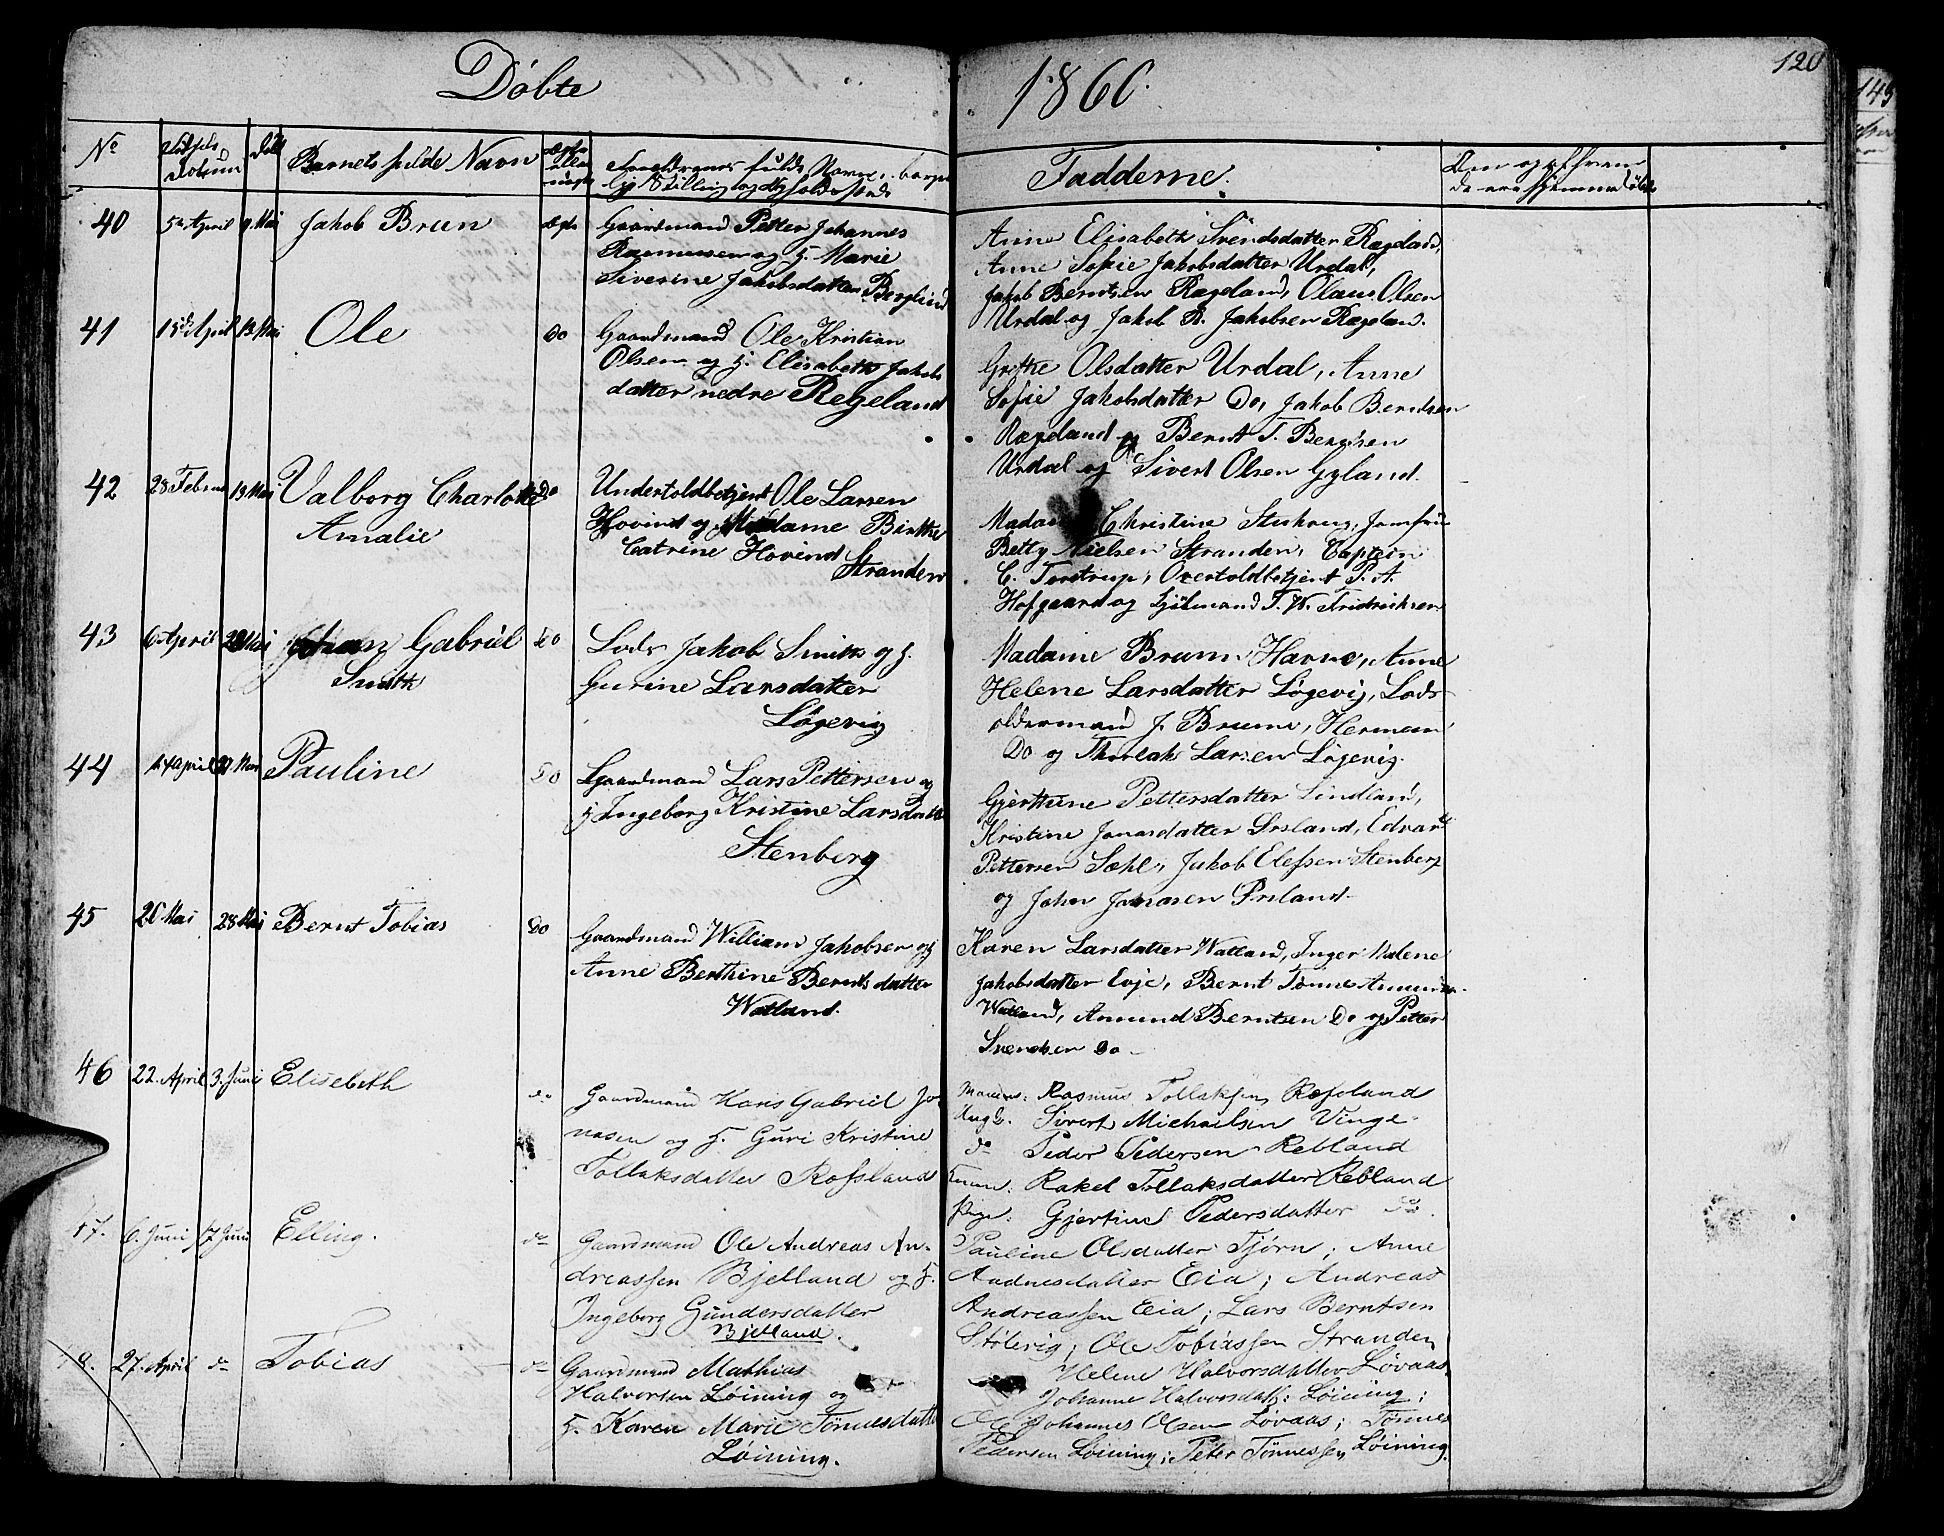 Döbte 1860.
120
149
No
Barnets fulde Navn
Fadderne.
40 5te April 9 Mai Jakob Brun ægte Gaardmand Petter Johannes
Rasmussen og H. Marie
Siverine Jakobsdatter Berglind
Anne Elisabeth Svendsdatter Rægeland,
Anne Sofie Jakobsdatter Urdal,
Jakob Berntsen Rægeland, Olaus Olsen
Urdal og Jakob B. Jakobsen Rægelan.
41 15de April 13 Mai Ole Do Gaardmand Ole Kristian
Olsen og H. Elisabeth Jakobs
datter nedre Regeland
Grethe Olsdatter Urdal, Anne
Sofie Jakobsdatter Do, Jakob Berntsen
Rægeland og Bernt T. Bentsen
Urdal og Sivert Olsen Gyland.
42 28 Febru 19 Mai Valborg Charlotte Do
Amalie
Undertoldbetjent Ole Larsen
Hovind og Madame Birthe
Catrine Hovind
Stranden
Madam Christine Stuhaug, Jomfru
Betty Nielsen Stranden, Captein
C. Torstrup, Overtoldbetjent P. A.
Hofgaard og Sjömand T. W. Fridriksen
43 6 April 28 Mai Johan Gabriel Do
Smith
Lods Jakob Smith og H.
Gurine Larsdatter
Løgevig
Madame Bruun Havne, Anne
Helene Larsdatter Løgevig, Lods
oldermand J. Bruun, Herman
Do og Thorlak Larsen Løgevig.
44 14 April 28 Mai Pauline Do Gaardmand Lars Pettersen og
H Ingeborg Kristine Larsdatte
Stenberg
Gjerthine Pettersdatter Lindland,
Kristine Jonasdatter Orsland, Edvard
Pettersen Sæhl, Jakob Elefsen Stenberg
og John Jonasen Orsland.
45 26 Mai 28 Mai Bernt Tobias Do Gaardmand William Jakobsen og H
Anne Berthine Berntsdatter
Watland.
Karen Larsdatter Watland, Inger Malene
Jakobsdatter Evje, Bernt Tönnes
Watland, Amund Berntsen Do og Petter
Svendsen Do
46 22. April 3. Juni Elisebeth do Gaardmand Hans Gabriel Jo-
nasen og H. Guri Kristine
Tollaksdatter Rofsland
Rasmus Tollaksen Refsland
Ungk. Sivert Michaelsen Vinge
do Peder Pedersen Rebland
Rakel Tollaksdatter Rebland
Pige: Gjertine Pedersdatter do.
47. 6. Juni 7 Juni Elling. do Gaardmand Ole Andreas An-
dreassen Bjelland og H.
Ingeborg Gundersdatter
Bjelland.
Pauline Olsdatter Tjørn; Anne
Andreasdatter Eia; Andreas
Andreassen Eia; Lars Berntsen
Stølevig; Ole Tobiassen Stranden
48. 27. April do Tobias do Gaardmand Mathias
Halvorsen Løining og
H. Karen Marie Tønnesdatt
Løining.
Helene Halvorsdatter Løvaas
Johanne Halvorsdatt: Løining;
Ole Johannes Olsen Løvaas; Tønnes
Pedersen Løining; Peter Tønnessen Løining.